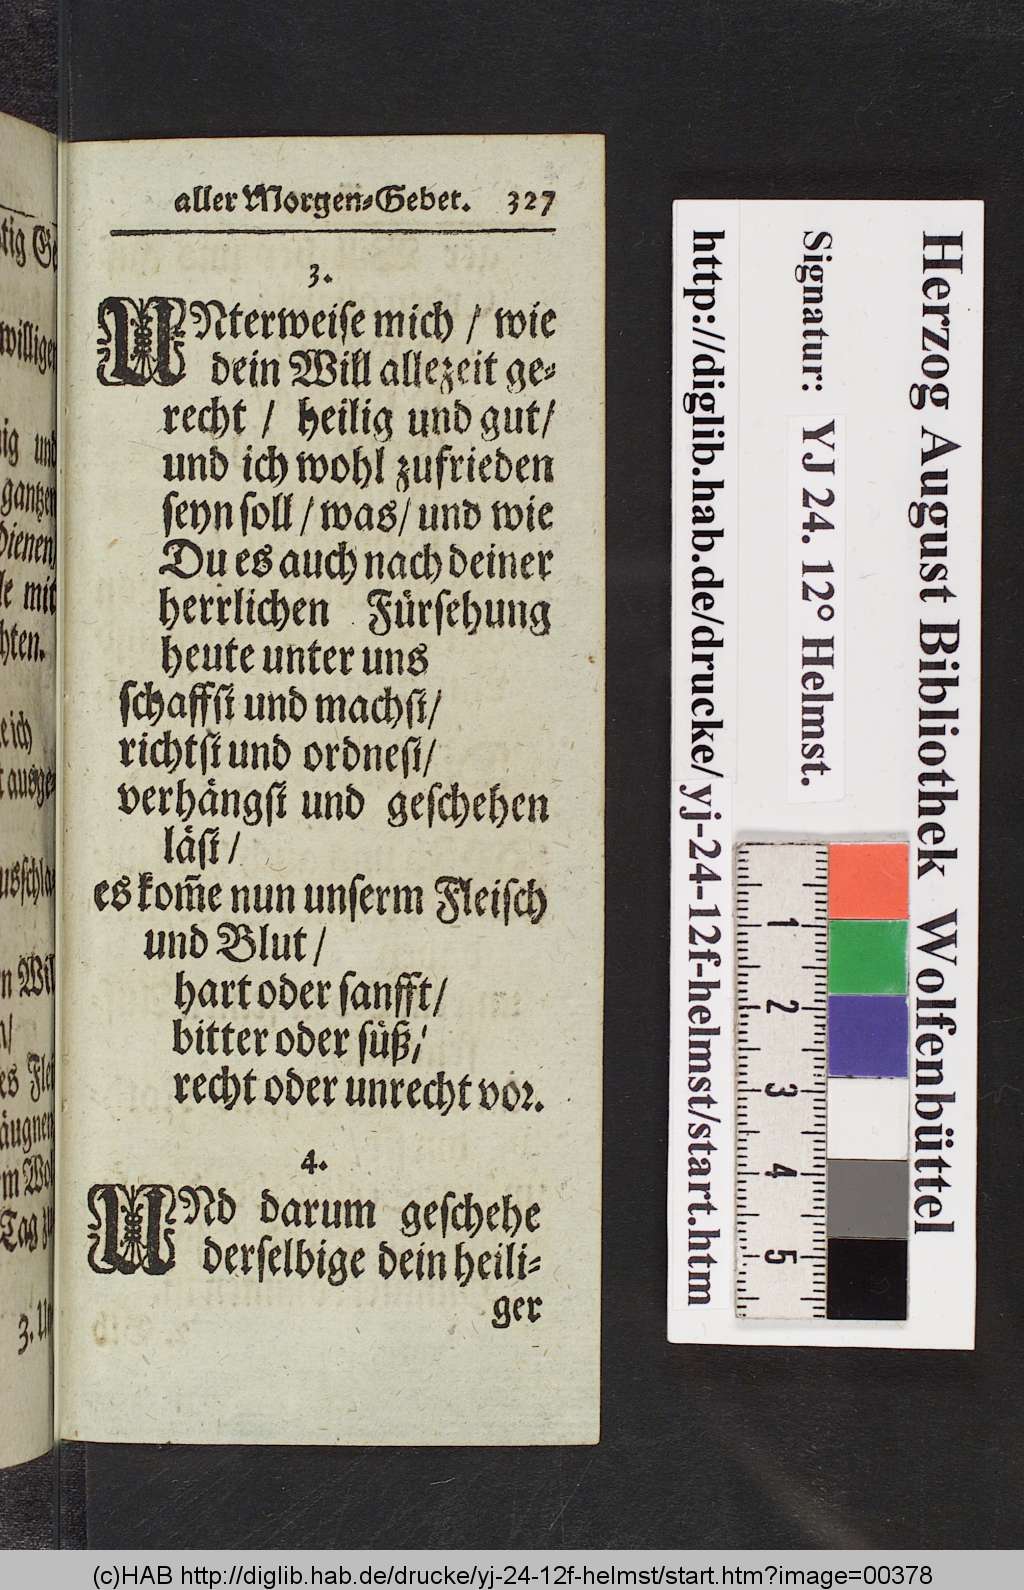 aller Morgen-Gebet. 327
3.
UNterweise mich / wie
dein Will allezeit ge-
recht / heilig und gut/
und ich wohl zufrieden
seyn soll / was/ und wie
Du es auch nach deiner
herrlichen Fürsehung
heute unter uns
schaffst und machst/
richtst und ordnest/
verhängst und geschehen
läst /
es kom̃e nun unserm Fleisch
und Blut /
hart oder sanfft/
bitter oder süß/
recht oder unrecht vor.
4.
UNd darum geschehe
derselbige dein heili-
ger
willigen
und
gantzen
dienen
mit
ich
3. Un
Herzog August Bibliothek Wolfenbüttel
Signatur: YJ 24. 12° Helmst.
http://diglib.hab.de/drucke/yj-24-12f-helmst/start.htm
1
2
3
4
5
(c)HAB http://diglib.hab.de/drucke/yj-24-12f-helmst/start.htm?image=00378